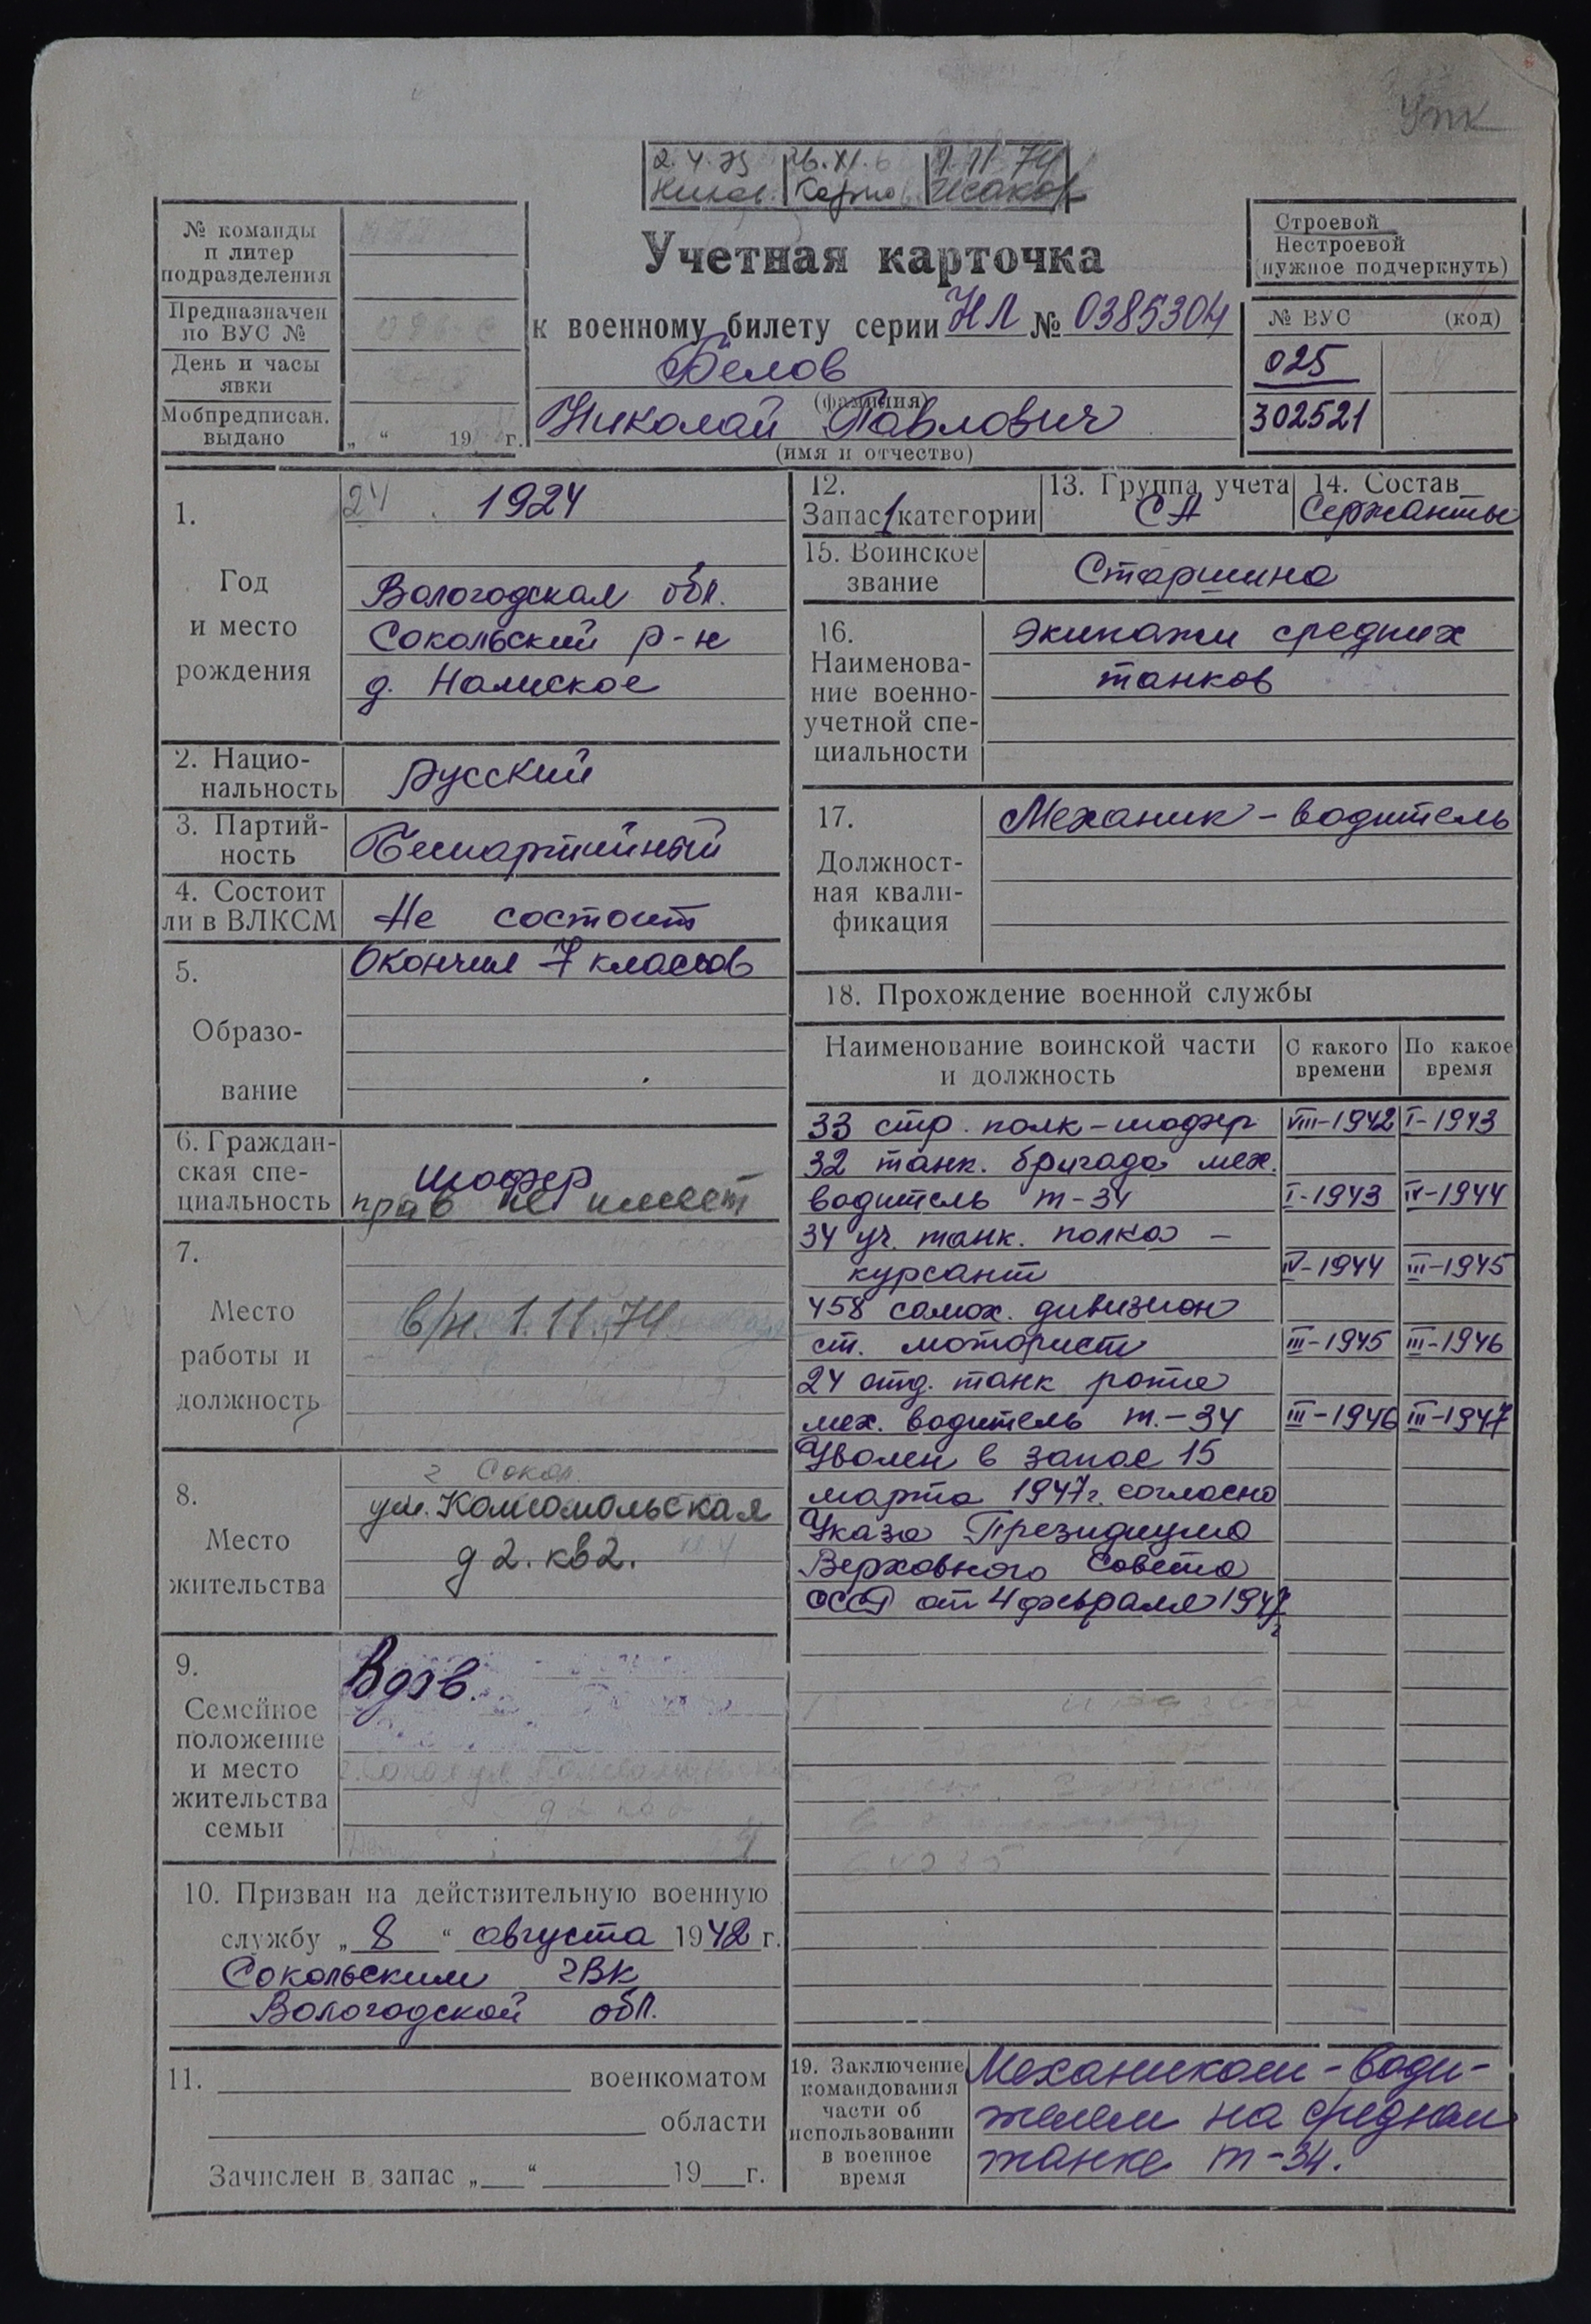 Упк
2.4.73 26.XI.6 1.11 74
Исаков
№ команды
и литер
подразделения
Предназначен
по ВУС №
День и часы
явки
Мобпредписан.
выдано
„ “ 19 г.
Учетная карточка
к военному билету серии НЛ № 0385304
Белов
(фамилия)
Николай Павлович
(имя и отчество)
Строевой
Нестроевой
(нужное подчеркнуть)
№ ВУС (код)
025
302521
1.
Год
и место
рождения
24 1924
Вологодская обл.
Сокольский р-н
д.
2. Нацио-
нальность
русский
3. Партий-
ность
Беспартийный
4. Состоит
ли в ВЛКСМ
Не состоит
5.
Образо-
вание
Окончил 7 классов
6. Граждан-
ская спе-
циальность
шофер
прав не имеет
7.
Место
работы и
должность
в/н. 1.11.74
8.
Место
жительства
г Сокол
ул. Комсомольская
д 2. кв 2. кв 4
9.
Семейное
положение
и место
жительства
семьи
Вдов.
г. Сокол ул Комсомольская
д 2 кв 2
4
10. Призван на действительную военную
службу „ 8 “ августа 1942 г.
Сокольским гВК
Вологодской обл.
11. военкоматом
области
Зачислен в запас „ “ 19 г.
12.
Запас 1 категории
13. Группа учета
СА
14. Состав
Сержанты
15. Воинское
звание
Старшина
16.
Наименова-
ние военно-
учетной спе-
циальности
Экипажи средних
танков
17.
Должност-
ная квали-
фикация
Механик-водитель
18. Прохождение военной службы
Наименование воинской части
и должность
С какого
времени
По какое
время
33 стр. полк-шофер VIII-1942 I-1943
32 танк. бригада мех.
водитель т-34 I-1943 IV-1944
34 уч. танк. полка –
курсант IV-1944 III-1945
458 самох. дивизион
ст. моторист III-1945 III-1946
24 отд. танк рота
мех. водитель т.-34 III-1946 III-1947
Уволен в запас 15
марта 1947г. согласно
Указа Президиума
Верховного Совета
СССР от 4 февраля 1947
г
19. Заключение
командования
части об
использовании
в военное
время
Механиком-води-
телем на среднем
танке т-34.